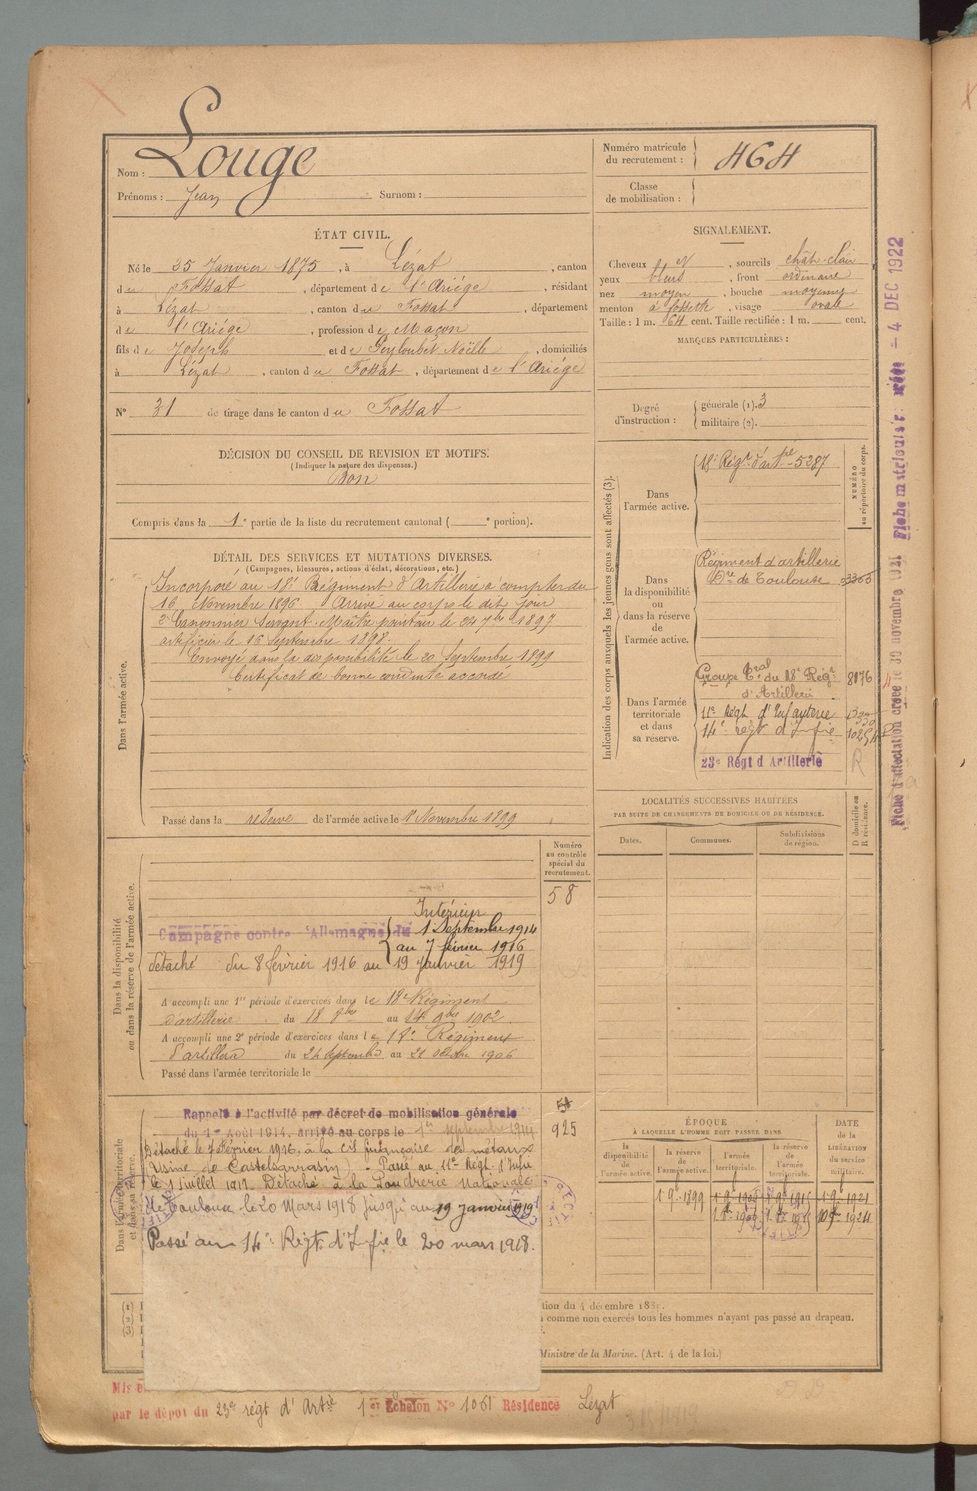 Nom : Louge
Prénoms : Jean Surnom :
Numéro matricule du recrutement : 464
Classe de mobilisation :
ÉTAT CIVIL.
Né le 25 Janvier 1875, à Lézat, canton
du Fossat, département de l'Ariége, résidant
à Lézat, canton du Fossat, département
de l'Ariége, profession de Maçon
fils de Joseph et de Peyloubét Noëlle, domiciliés
à Lézat, canton du Fossat, département de l'Ariége
N° 31 de tirage dans le canton du Fossat
DÉCISION DU CONSEIL DE REVISION ET MOTIFS.
(Indiquer la nature des dispenses.)
Bon
Compris dans la 1e partie de la liste du recrutement cantonal ( e portion).
SIGNALEMENT.
Cheveux , sourcils chât. clair
yeux bleus, front ordinaire
nez moyen, bouche moyenne
menton à fossette, visage ovale
Taille : 1 m. 64 cent. Taille rectifiée : 1 m. cent.
MARQUES PARTICULIÈRES :
Degré d'instruction : générale (1). 3
militaire (2).
DÉTAIL DES SERVICES ET MUTATIONS DIVERSES.
(Campagnes, blessures, actions d'éclat, décorations, etc.)
Dans l'armée active.
Incorporé au 18e Régiment d'Artillerie à compter du
16 Novembre 1896 Arrivé au corps le dit jour
2e Canonnier Servant. Maître pointeur le 24 7bre 1897
artificier le 16 Septembre 1898.
Envoyé dans la disponibilité le 20 Septembre 1899
Certificat de bonne conduite accordé
Passé dans la réserve de l'armée active le 1r Novembre 1899
Indication des corps auxquels les jeunes gens sont affectés (3).
NUMÉRO au répertoire du corps.
Dans l'armée active.
18e Régt d'Artie 5287
Dans la disponibilité ou dans la réserve de l'armée active.
Régiment d'artillerie
de Toulouse 3355
Dans l'armée territoriale et dans sa réserve.
Groupe Tral du 18e Régt 8176
d'Artillerie
11e Régt d'Infanterie
14e régt d'Infie
23e Régt d'Artillerie R
Fiche d'affectation créée le 30 novembre 1921 Fiche matriculaire créée - 4 DEC 1922
LOCALITÉS SUCCESSIVES HABITÉES
PAR SUITE DE CHANGEMENTS DE DOMICILE OU DE RÉSIDENCE.
Dates. Communes. Subdivisions de région. D domicile ou R résidence.
Dans la disponibilité ou dans la réserve de l'armée active.
Numéro au contrôle spécial du recrutement.
58
Intérieur
Campagne contre l'Allemagne du 1 Septembre 1914
au 7 février 1916
détaché du 8 février 1916 au 19 Janvier 1919
A accompli une 1re période d'exercices dans le 18e Régiment
d'artillerie du 18 8bre au 14 9bre 1902
A accompli une 2e période d'exercices dans le 18e Régiment
d'artillerie du 24 Septembre au 21 octobre 1906
Passé dans l'armée territoriale le
Dans l'armée territoriale et dans sa réserve.
Rappelé à l'activité par décret de mobilisation générale
du 1er Août 1914, arrivé au corps le 1er septembre 1914
925
Détaché le 7 février 1916, à la Cie française des métaux
(Usine de Castelsarrasin) - Passé au 11e Régt d'Infie
le 1 juillet 1917. Détaché à la Poudrerie Nationale
de Toulouse le 20 Mars 1918 jusqu'au 19 janvier 1919
Passé au 14e Régt d'Infie le 20 mars 1918.
ÉPOQUE
À LAQUELLE L'HOMME DOIT PASSER DANS
la disponibilité de l'armée active. la réserve de l'armée active. l'armée territoriale. la réserve de l'armée territoriale.
DATE de la LIBÉRATION du service militaire.
(1)
(2)
(3)
comme non exercés tous les hommes n'ayant pas passé au drapeau.
Ministre de la Marine. (Art. 4 de la loi.)
par le dépôt du 23e régt d'Artie 1er Echelon N° 1061 Résidence Lézat